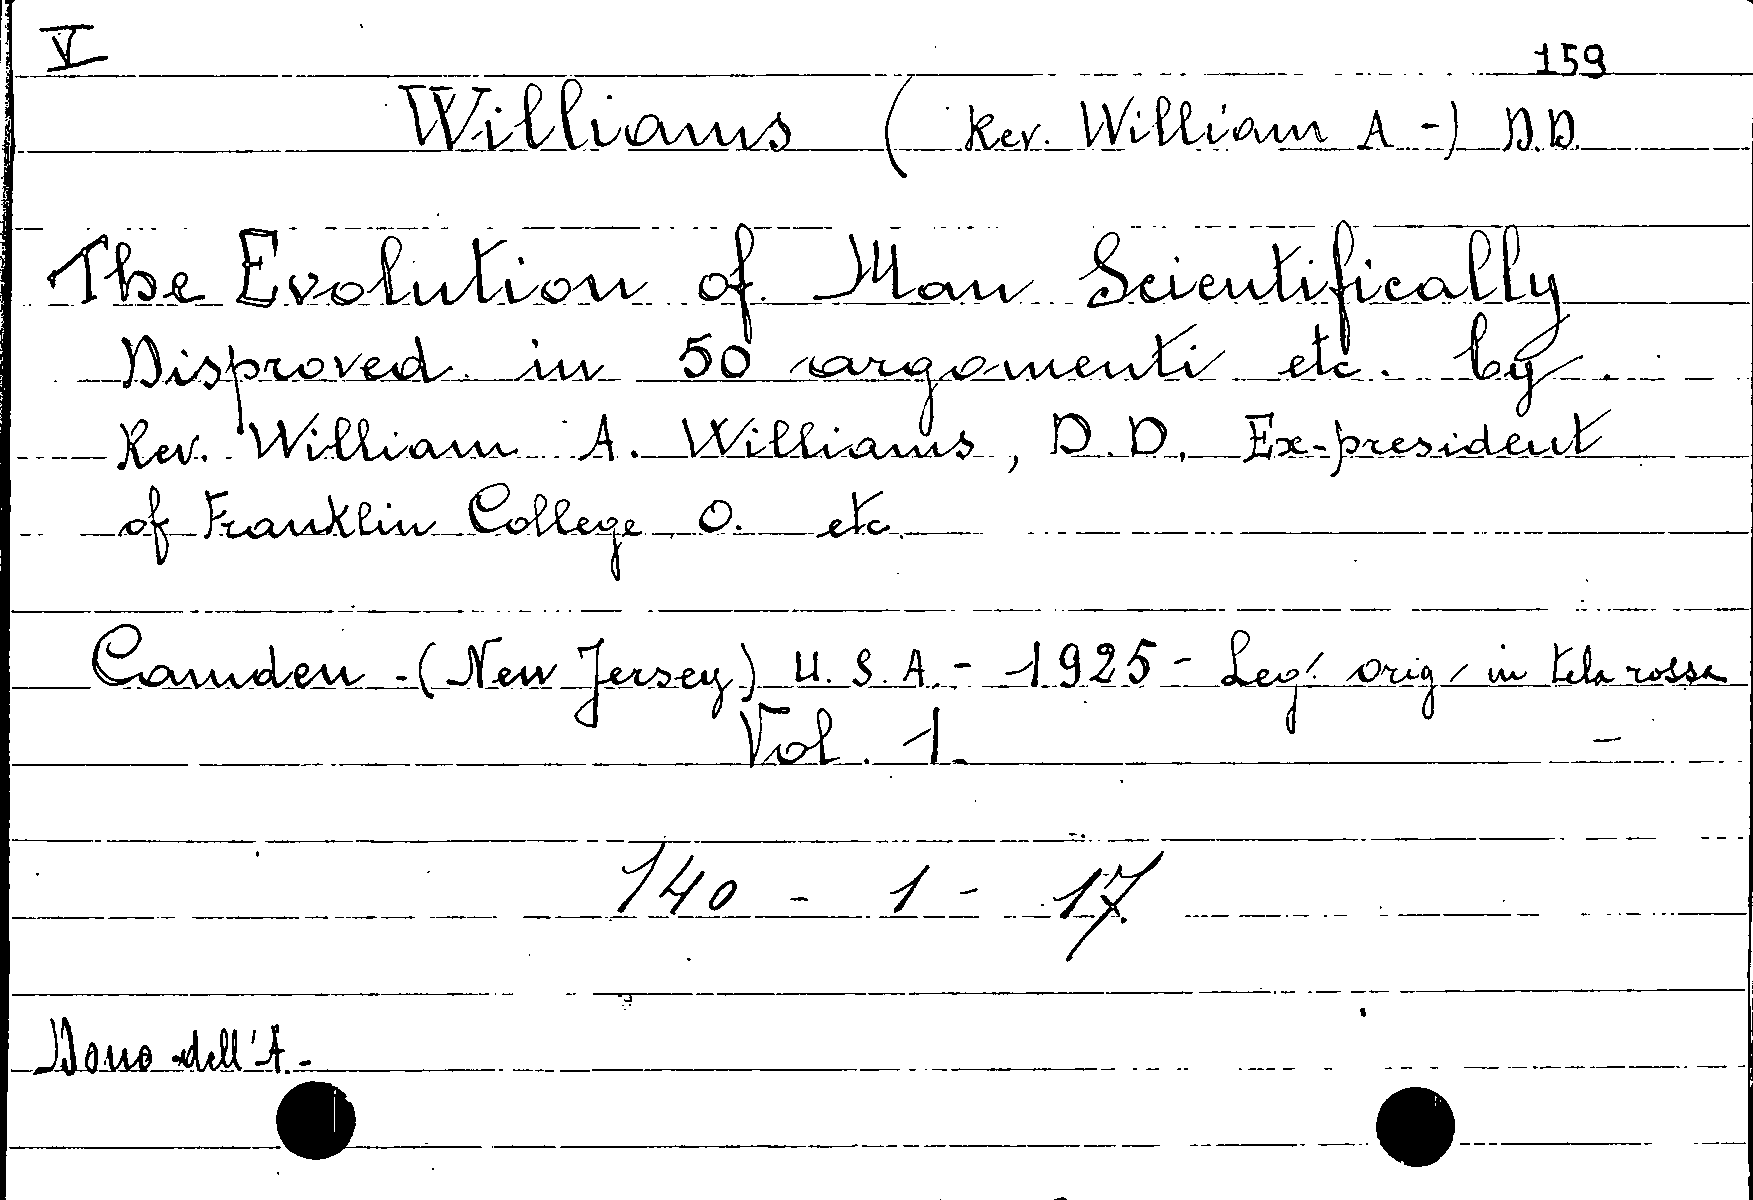 V
159
Williams (Rev. William A -) D.D.
The Evolution of Man Scientifically
Disproved in 50 argomenti etc. by
Rev. William A. Williams, D.D. Ex-president
of Franklin College O. etc.
Camden - (New Jersey) U.S.A. - 1925 - Leg. orig. in tela rossa -
Vol. 1.
140 - 1 - 17
Dono dell'A.-